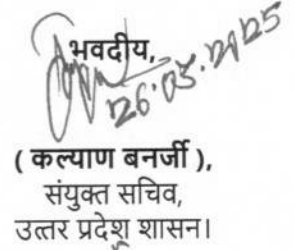 भवदीय,
26.05.2025
( कल्याण बनर्जी ),
संयुक्त सचिव,
उत्तर प्रदेश शासन।